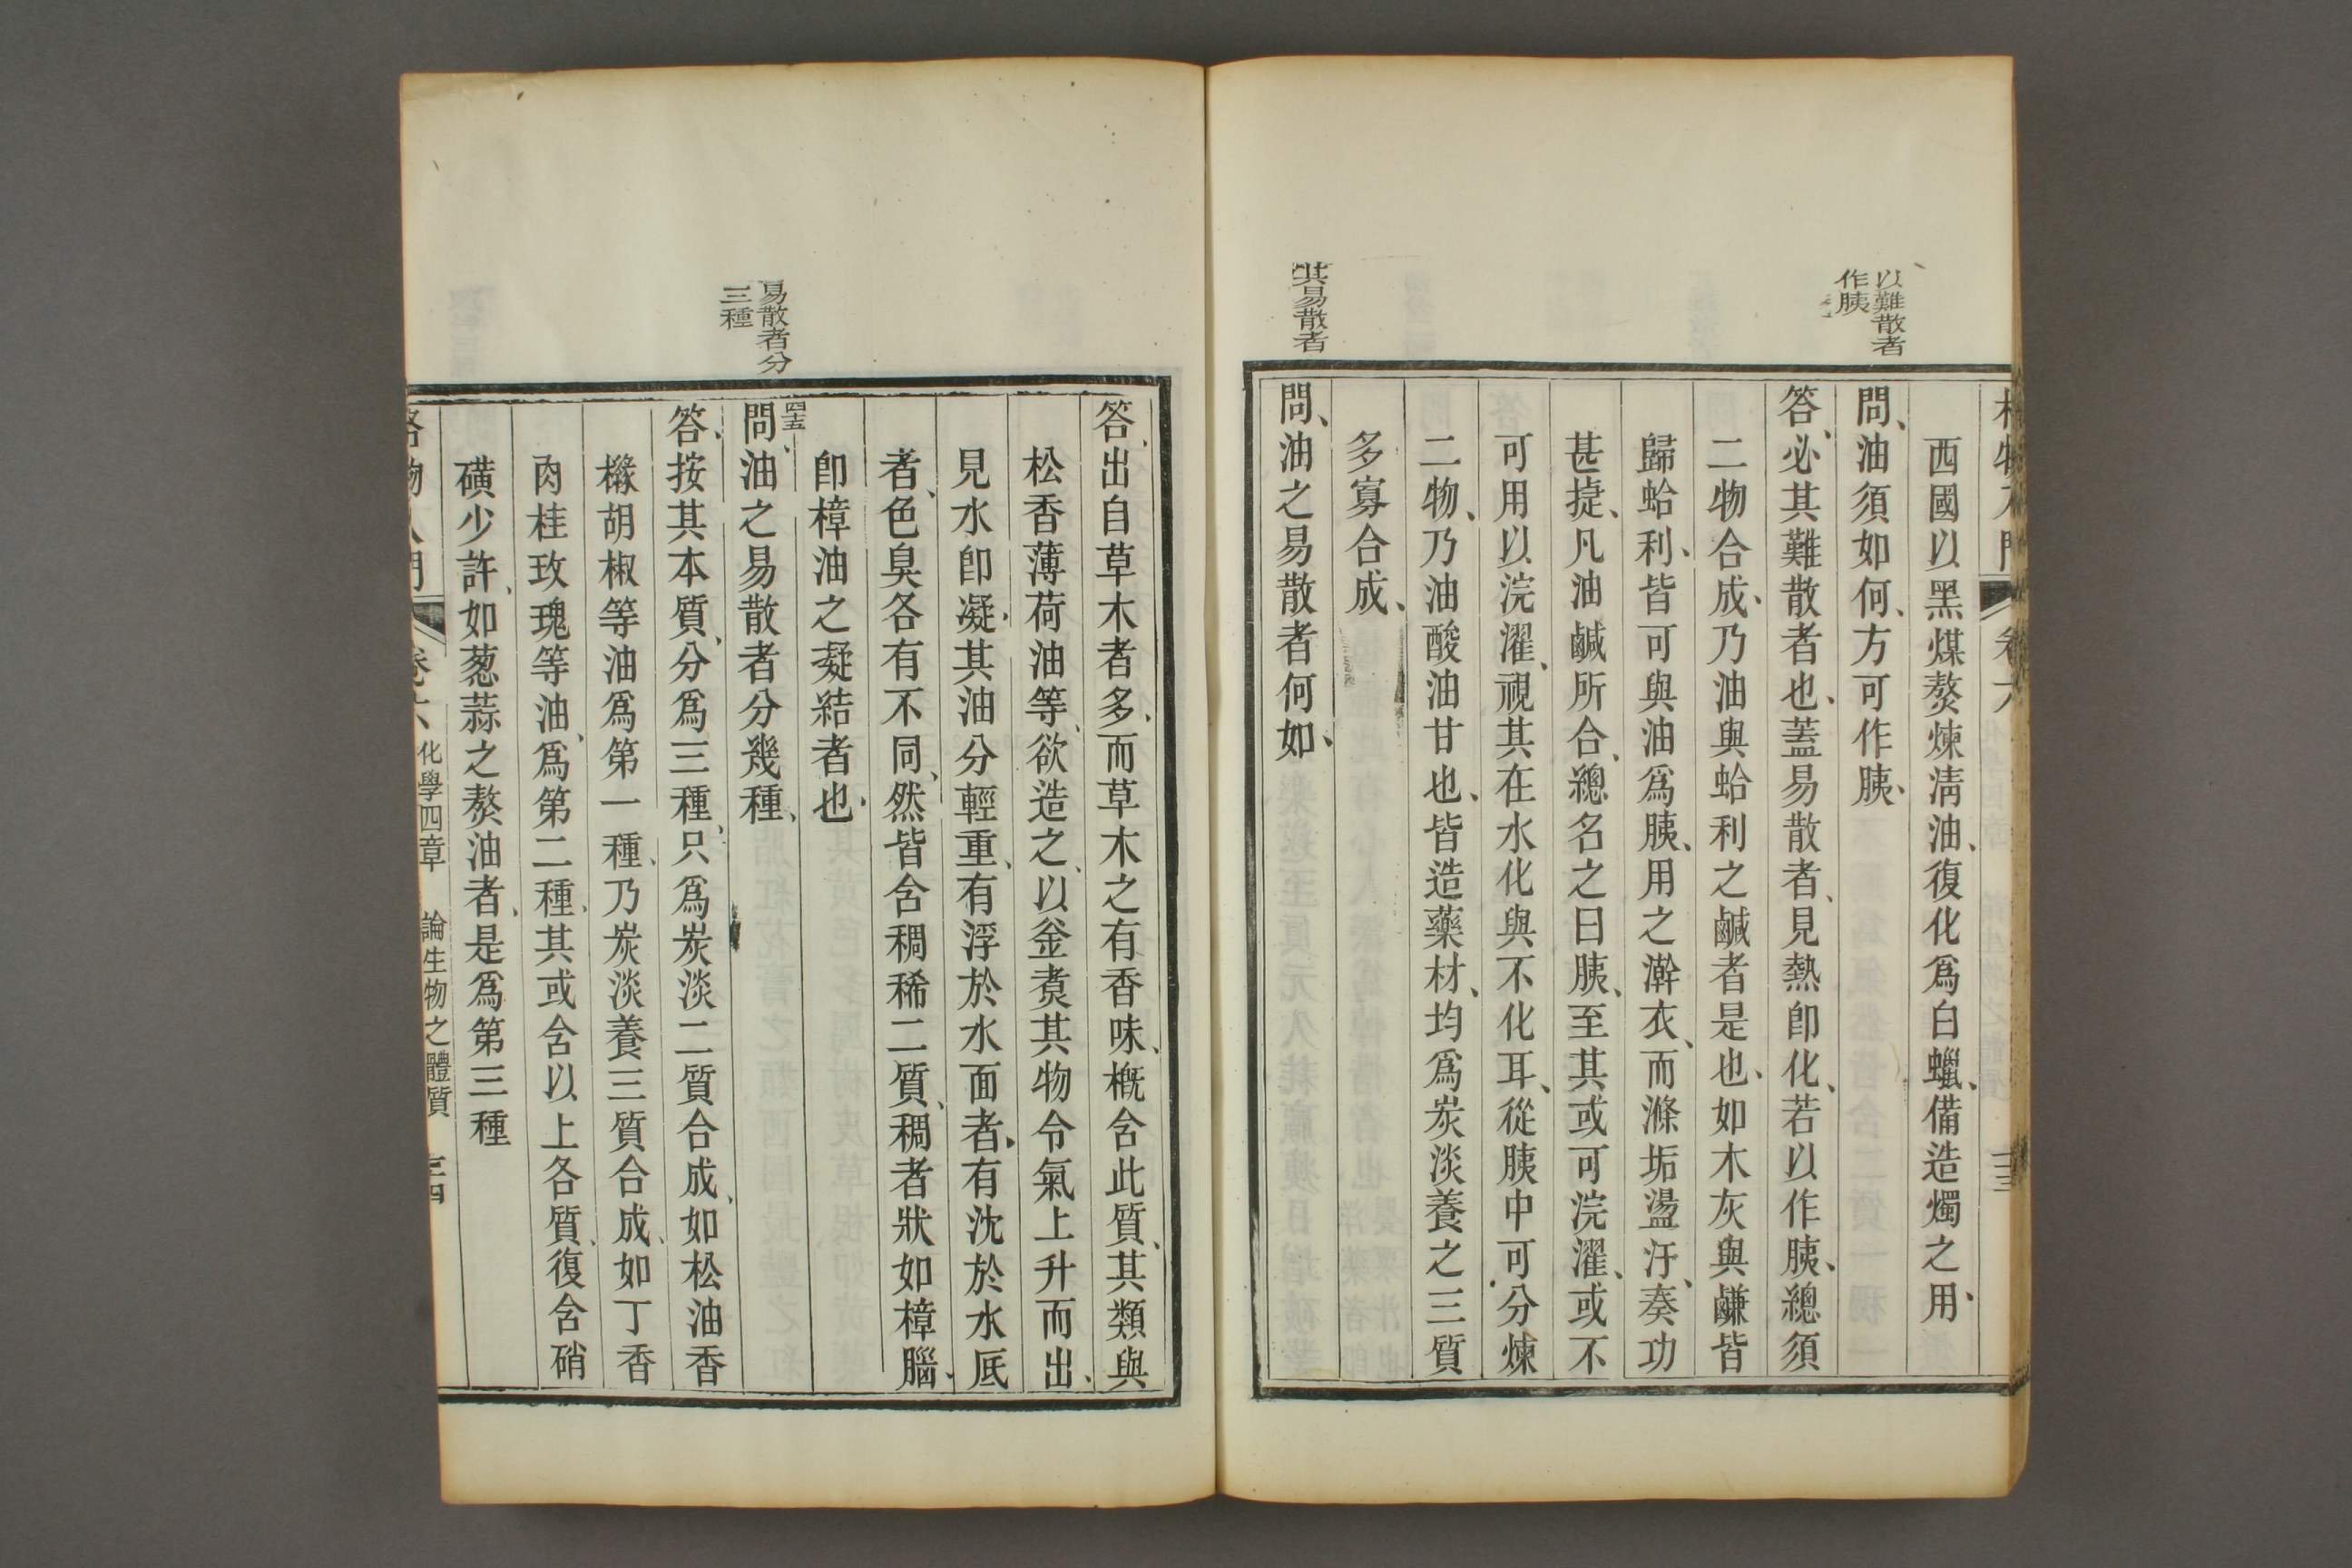 以難散者
作胰
其易散者
格物入門 卷六
西國以黑煤熬煉淸油、復化爲白蠟、備造燭之用、
問、油須如何、方可作胰、
答、必其難散者也、蓋易散者、見熱卽化、若以作胰、總須
二物合成、乃油與蛤利之鹹者是也、如木灰與鹻皆
歸蛤利、皆可與油爲胰、用之澣衣、而滌垢盪汙、奏功
甚㨗、凡油鹹所合、總名之曰胰、至其或可浣濯、或不
可用以浣濯、視其在水化與不化耳、從胰中可分煉
二物、乃油酸油甘也、皆造藥材、均爲炭淡養之三質
多寡合成、
問、油之易散者何如、
易散者分
三種
答、出自草木者多、而草木之有香味、槪含此質、其類與
松香薄荷油等、欲造之、以釜煑其物令氣上升而出、
見水卽凝、其油分輕重、有浮於水面者、有沈於水底
者、色臭各有不同、然皆含稠稀二質、稠者狀如樟腦、
卽樟油之凝結者也、
四十五
問、油之易散者分幾種、
答、按其本質、分爲三種、只爲炭淡二質合成、如松油香
櫞胡椒等油爲第一種、乃炭淡養三質合成、如丁香
肉桂玫瑰等油、爲第二種、其或含以上各質、復含硝
磺少許、如葱蒜之熬油者、是爲第三種
格物入門 卷六 化學四章 論生物之體質 三四